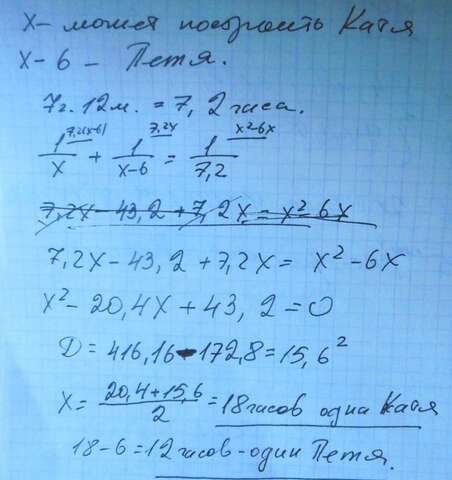 x – может покрасить Катя
x – 6 – Петя.
7ч. 12м. = 7,2 часа.
1/x 7,2(x-6) + 1/(x-6) 7,2x = 1/7,2 x²-6x
7,2x – 43,2 + 7,2x = x² – 6x
7,2x – 43,2 + 7,2x = x² – 6x
x² – 20,4x + 43,2 = 0
D = 416,16 – 172,8 = 15,6²
x = (20,4 + 15,6)/2 = 18 часов одна Катя
18 – 6 = 12 часов – один Петя.